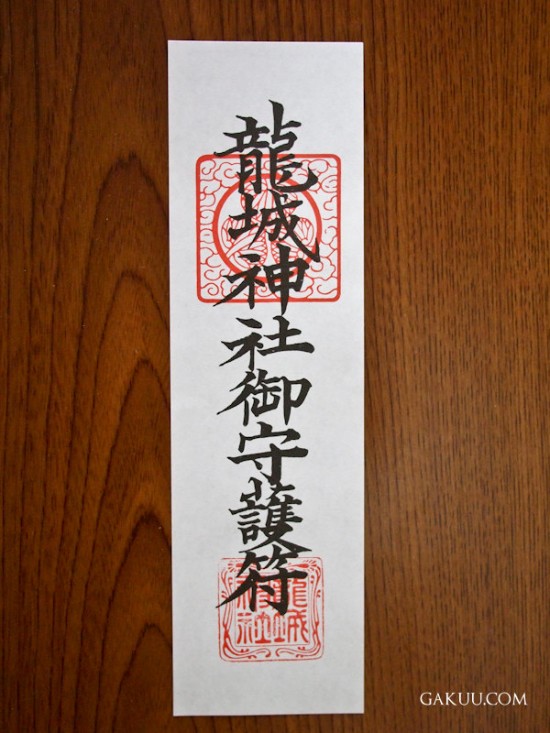 龍城神社御守護符
龍城
神社
GAKUU.COM